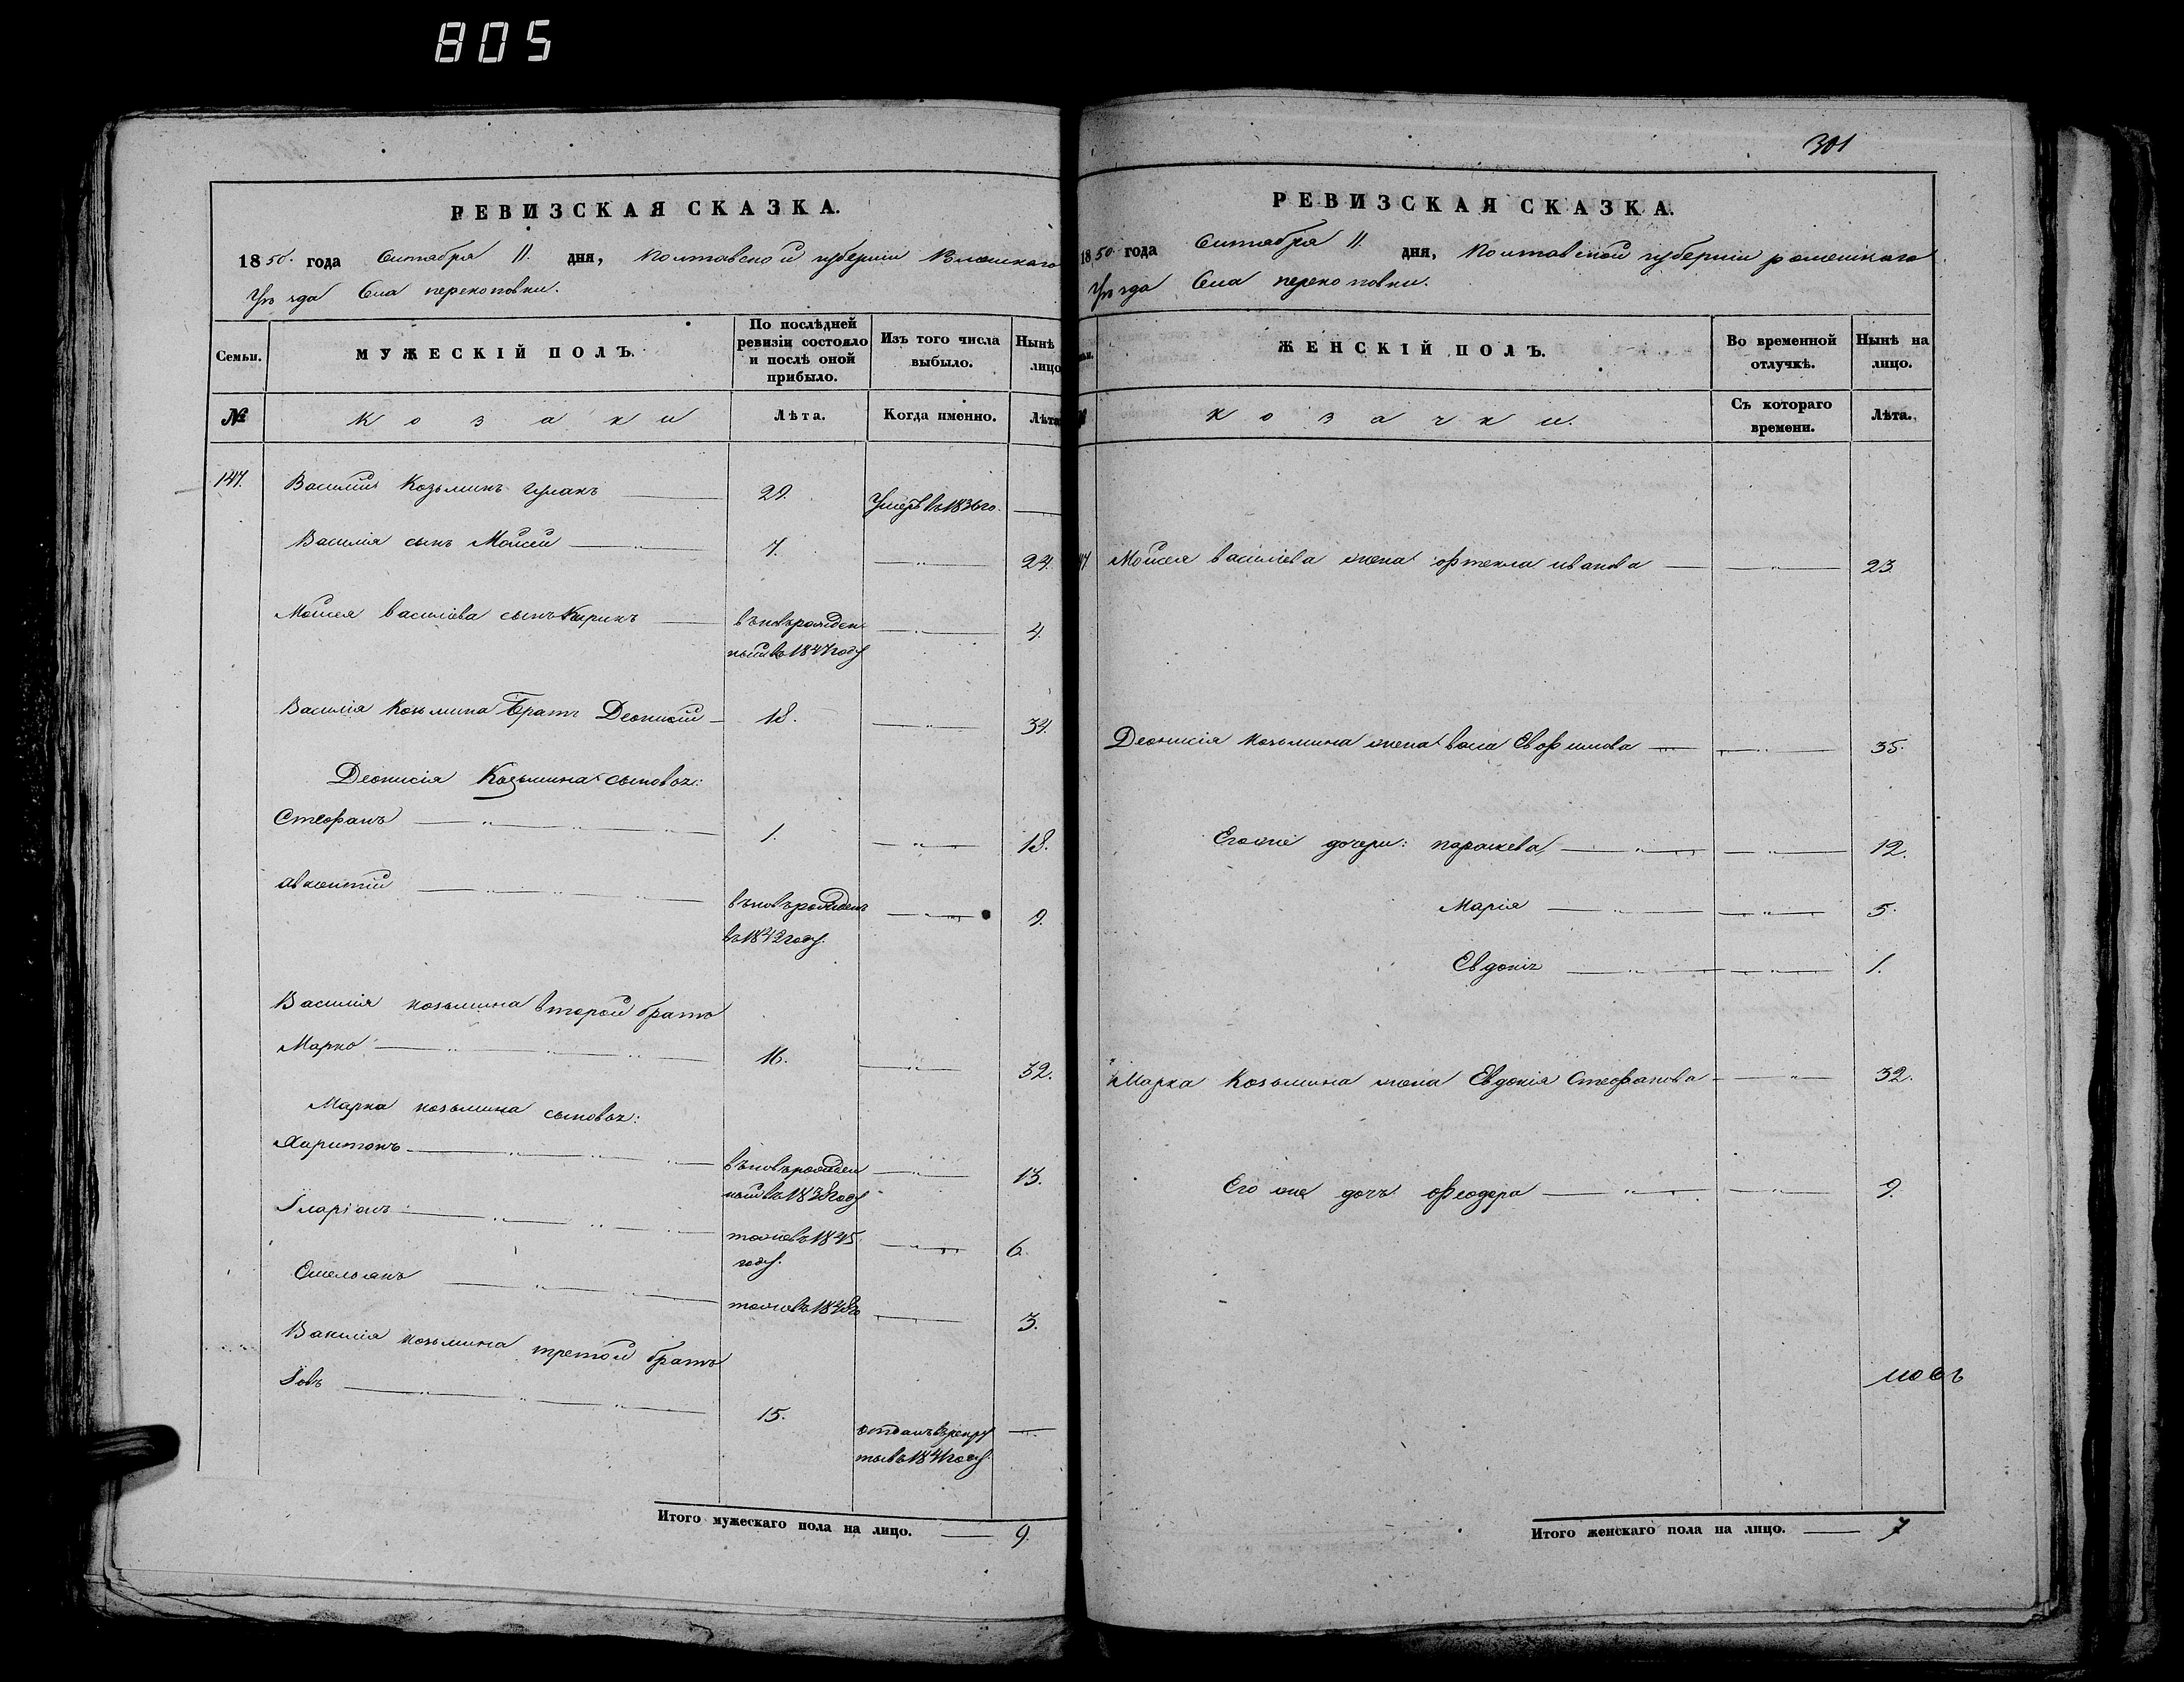 805
РЕВИЗСКАЯ СКАЗКА.
1850. года Сентября 11. дня, Полтавской губерніи
Уѣзда Села перекоповки.
Семьи.
МУЖЕСКІЙ ПОЛЪ.
По послѣдней ревизіи состояло и послѣ оной прибыло.
Изъ того числа выбыло.
Нынѣ лицо
№
Козаки
Лѣта.
Когда именно.
Лѣта
147.
Василій Козьминъ 20. Умеръ въ 1836 го.
Василія сынъ Мойсей 7. 24.
Мойсея василіева сынъ Кирикъ въновърожден 4.
ный въ 1847 году
Василія Козьмина Братъ Деонисій 18. 34.
Деонисія Козьмина сыновья:
Стефанъ 1. 18.
авксентій въновърожденъ 9.
въ 1842 году.
Василія козьмина второй братъ
Марко 16. 32.
Марка козьмина сыновья:
Харитонъ въновърожден 13.
ный въ 1838 году
Іларіонъ тоже въ 1845 6.
году.
Омельянъ тоже въ 1848 го 3.
Василія козьмина третой братъ
Іовъ 15. отданъ въ рекру
ты въ 1841 году.
Итого мужескаго пола на лицо. 9.
301
РЕВИЗСКАЯ СКАЗКА.
1850. года Сентября 11. дня, Полтавской губерніи роменскаго
Уѣзда Села перекоповки.
ЖЕНСКІЙ ПОЛЪ.
Во временной отлучкѣ.
Нынѣ на лицо.
козачки.
Съ котораго времени.
Лѣта.
Мойсея василіева жена фтекла иванова 23
Деонисія козьмина жена Евфимова 35.
Егоже дочери: параскева 12.
Марія 5.
Евдокія 1.
Марка Козьмина жена Евдокія Стефанова 32.
Его же дочь феодера 9.
Итого женскаго пола на лицо. 7